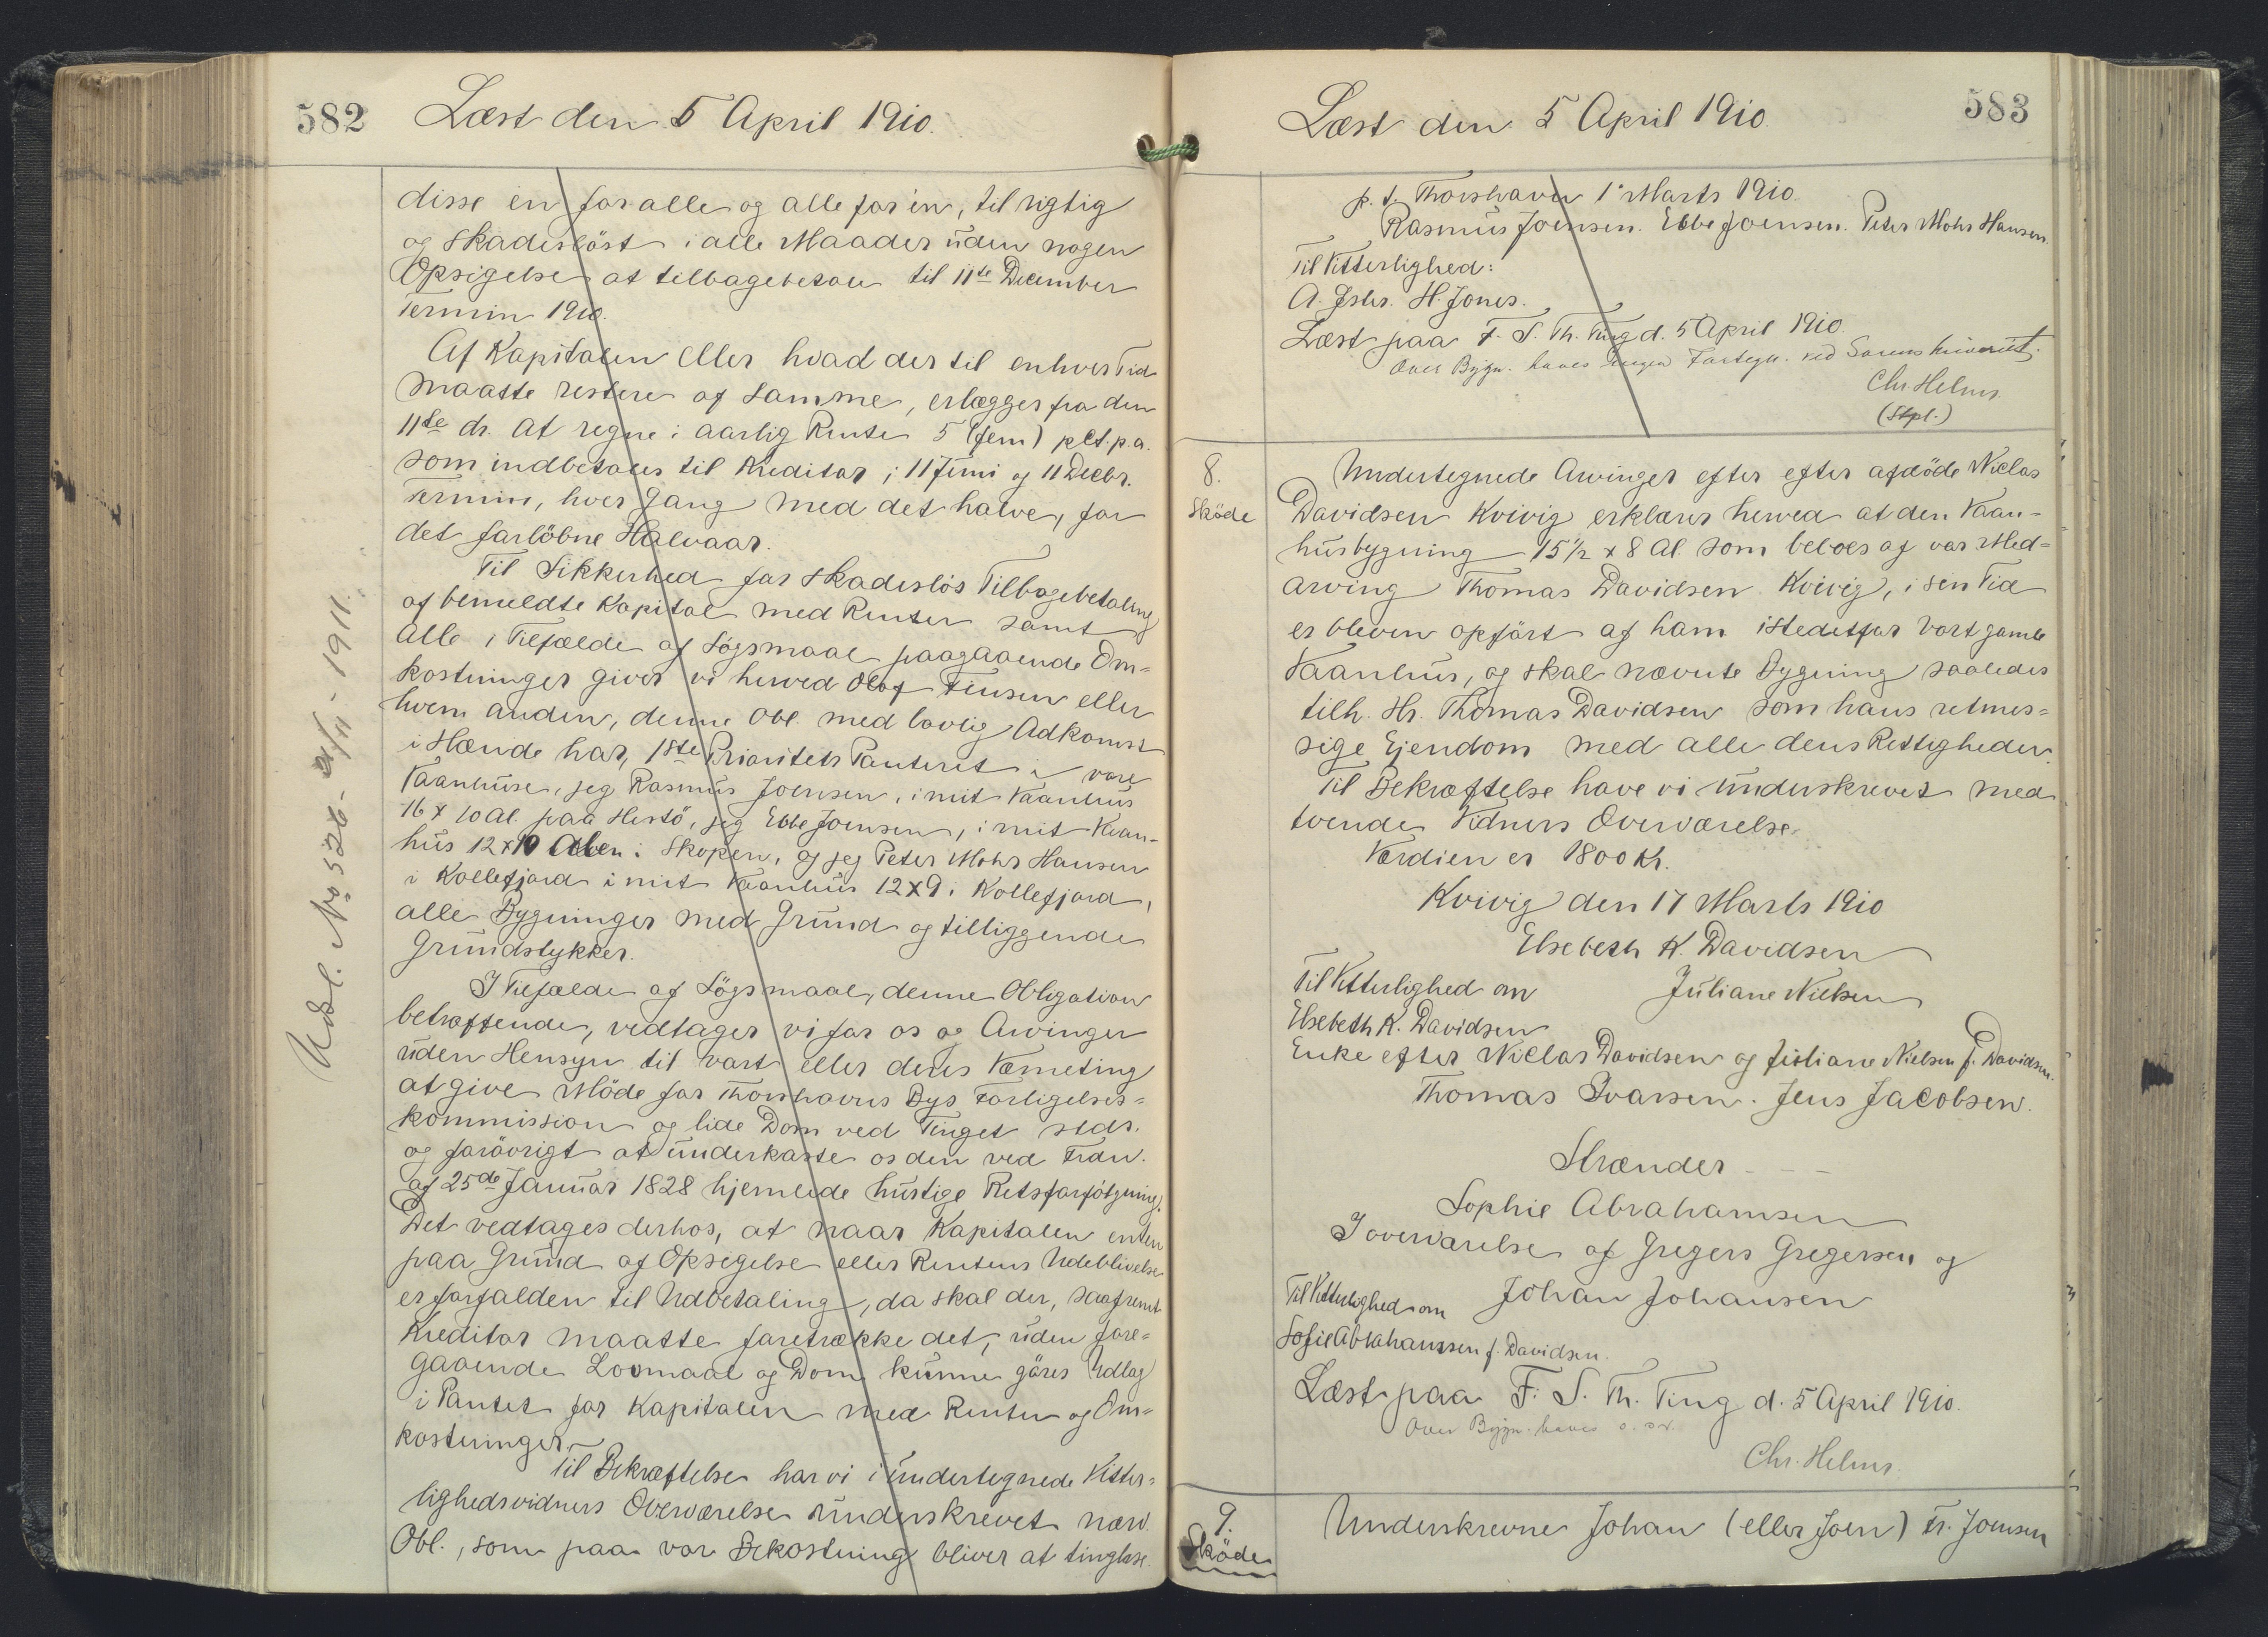 582
Læst den 5 April 1910.
disse en for alle og alle for én, til rigtig
og skadesløst i alle Maader uden nogen
Opsigelse at tilbagebetale til 11te December
Termin 1910.
Af Kapitalen eller hvad der til enhver Tid
maatte restere af samme, erlægges fra den
11te ds. at regne i aarlig Rente 5 (fem) pCt. p.a.
som indbetales til Kreditor i 11 Juni og 11 Decbr.
Termin, hver Gang med det halve, for
det forløbne Halvaar.
Til Sikkerhed for skadesløs Tilbagebetaling
af bemeldte Kapital med Renter samt
alle i Tilfælde af Søgsmaal paagaaende Om-
kostninger giver vi herved Olaf Finsen eller
hvem anden, denne Obl. med lovlig Adkomst
i Hænde har, 1ste Prioritets Panteret i vore
Vaanhuse, jeg Rasmus Joensen, i mit Vaanhus
16 x 10 Al. paa Hestö, jeg Ebbe Joensen, i mit Vaan-
hus 12 x 10 Alen i Skopen, og jeg Peter Mohr Hansen
i Kollefjord i mit Vaanhus 12 x 9 i Kollefjord,
alle Bygninger med Grund og tilliggende
Grundstykker.
I Tilfælde af Søgsmaal, denne Obligation
betræffende, vedtager vi for os og Arvinger
uden Hensyn til vort eller deres Værneting
at give Möde for Thorshavns Bys Forligelses-
kommission og lide Dom ved Tinget sgds.
og forøvrigt at underkaste os den ved Frdn.
af 25de Januar 1828 hjemlede hurtige Retsforfölgning.
Det vedtages derhos, at naar Kapitalen enten
paa Grund af Opsigelse eller Rentens Udeblivelse
er forfalden til Udbetaling, da skal der, saafremt
Kreditor maatte foretrække det, uden fore-
gaaende Lovmaal og Dom kunne göres Udlæg
i Pantet for Kapitalen med Renter og Om-
kostninger.
Til Bekræftelse har vi i undertegnede Vitter-
lighedsvidners Overværelse underskrevet nærv.
Obl., som paa vor Bekostning bliver at tinglæse.
Udsl. No 526 - 21/11 - 1911.
Læst den 5 April 1910.
583
p. t. Thorshavn 1' Marts 1910.
Rasmus Joensen. Ebbe Joensen. Peter Mohr Hansen.
Til Vitterlighed:
A. Jstes. H. Jones.
Læst paa F. S. Th. Ting d. 5 April 1910.
Over Bygn. haves ingen Fortegn. ved Sorenskriveriet.
Chr Helms
(Stpl.)
8.
Sköde
Undertegnede Arvinger efter efter afdöde Niclas
Davidsen Kvivig erklærer herved at den Vaan-
husbygning 15 1/2 x 8 Al. som beboes af vor Med-
arving Thomas Davidsen Kvivig, i sin Tid
er bleven opfört af ham istedetfor vort gamle
Vaanhus, og skal nævnte Bygning saaledes
tilh. Hr. Thomas Davidsen som hans retmes-
sige Ejendom med alle dens Rettigheder.
Til Bekræftelse have vi underskrevet med
tvende Vidners Overværelse.
Værdien er 1800 Kr.
Kvivig den 17 Marts 1910
Elsebeth K. Davidsen
Til Vitterlighed om Juliane Nielsen
Elsebeth K. Davidsen
Enke efter Niclas Davidsen og Juliane Nielsen f. Davidsen.
Thomas Ivarsen. Jens Jacobsen.
Strænder - - -
Sophie Abrahamsen
I overværelse af Gregers Gregersen og
Til Vitterlighed om Johan Johansen
Sofie Abrahamsen f. Davidsen.
Læst paa F. S. Th. Ting d. 5 April 1910.
Over Bygn. haves o. s. v.
Chr. Helms.
9.
Sköde
Underskrevne Johan (eller Joen) Fr. Joensen